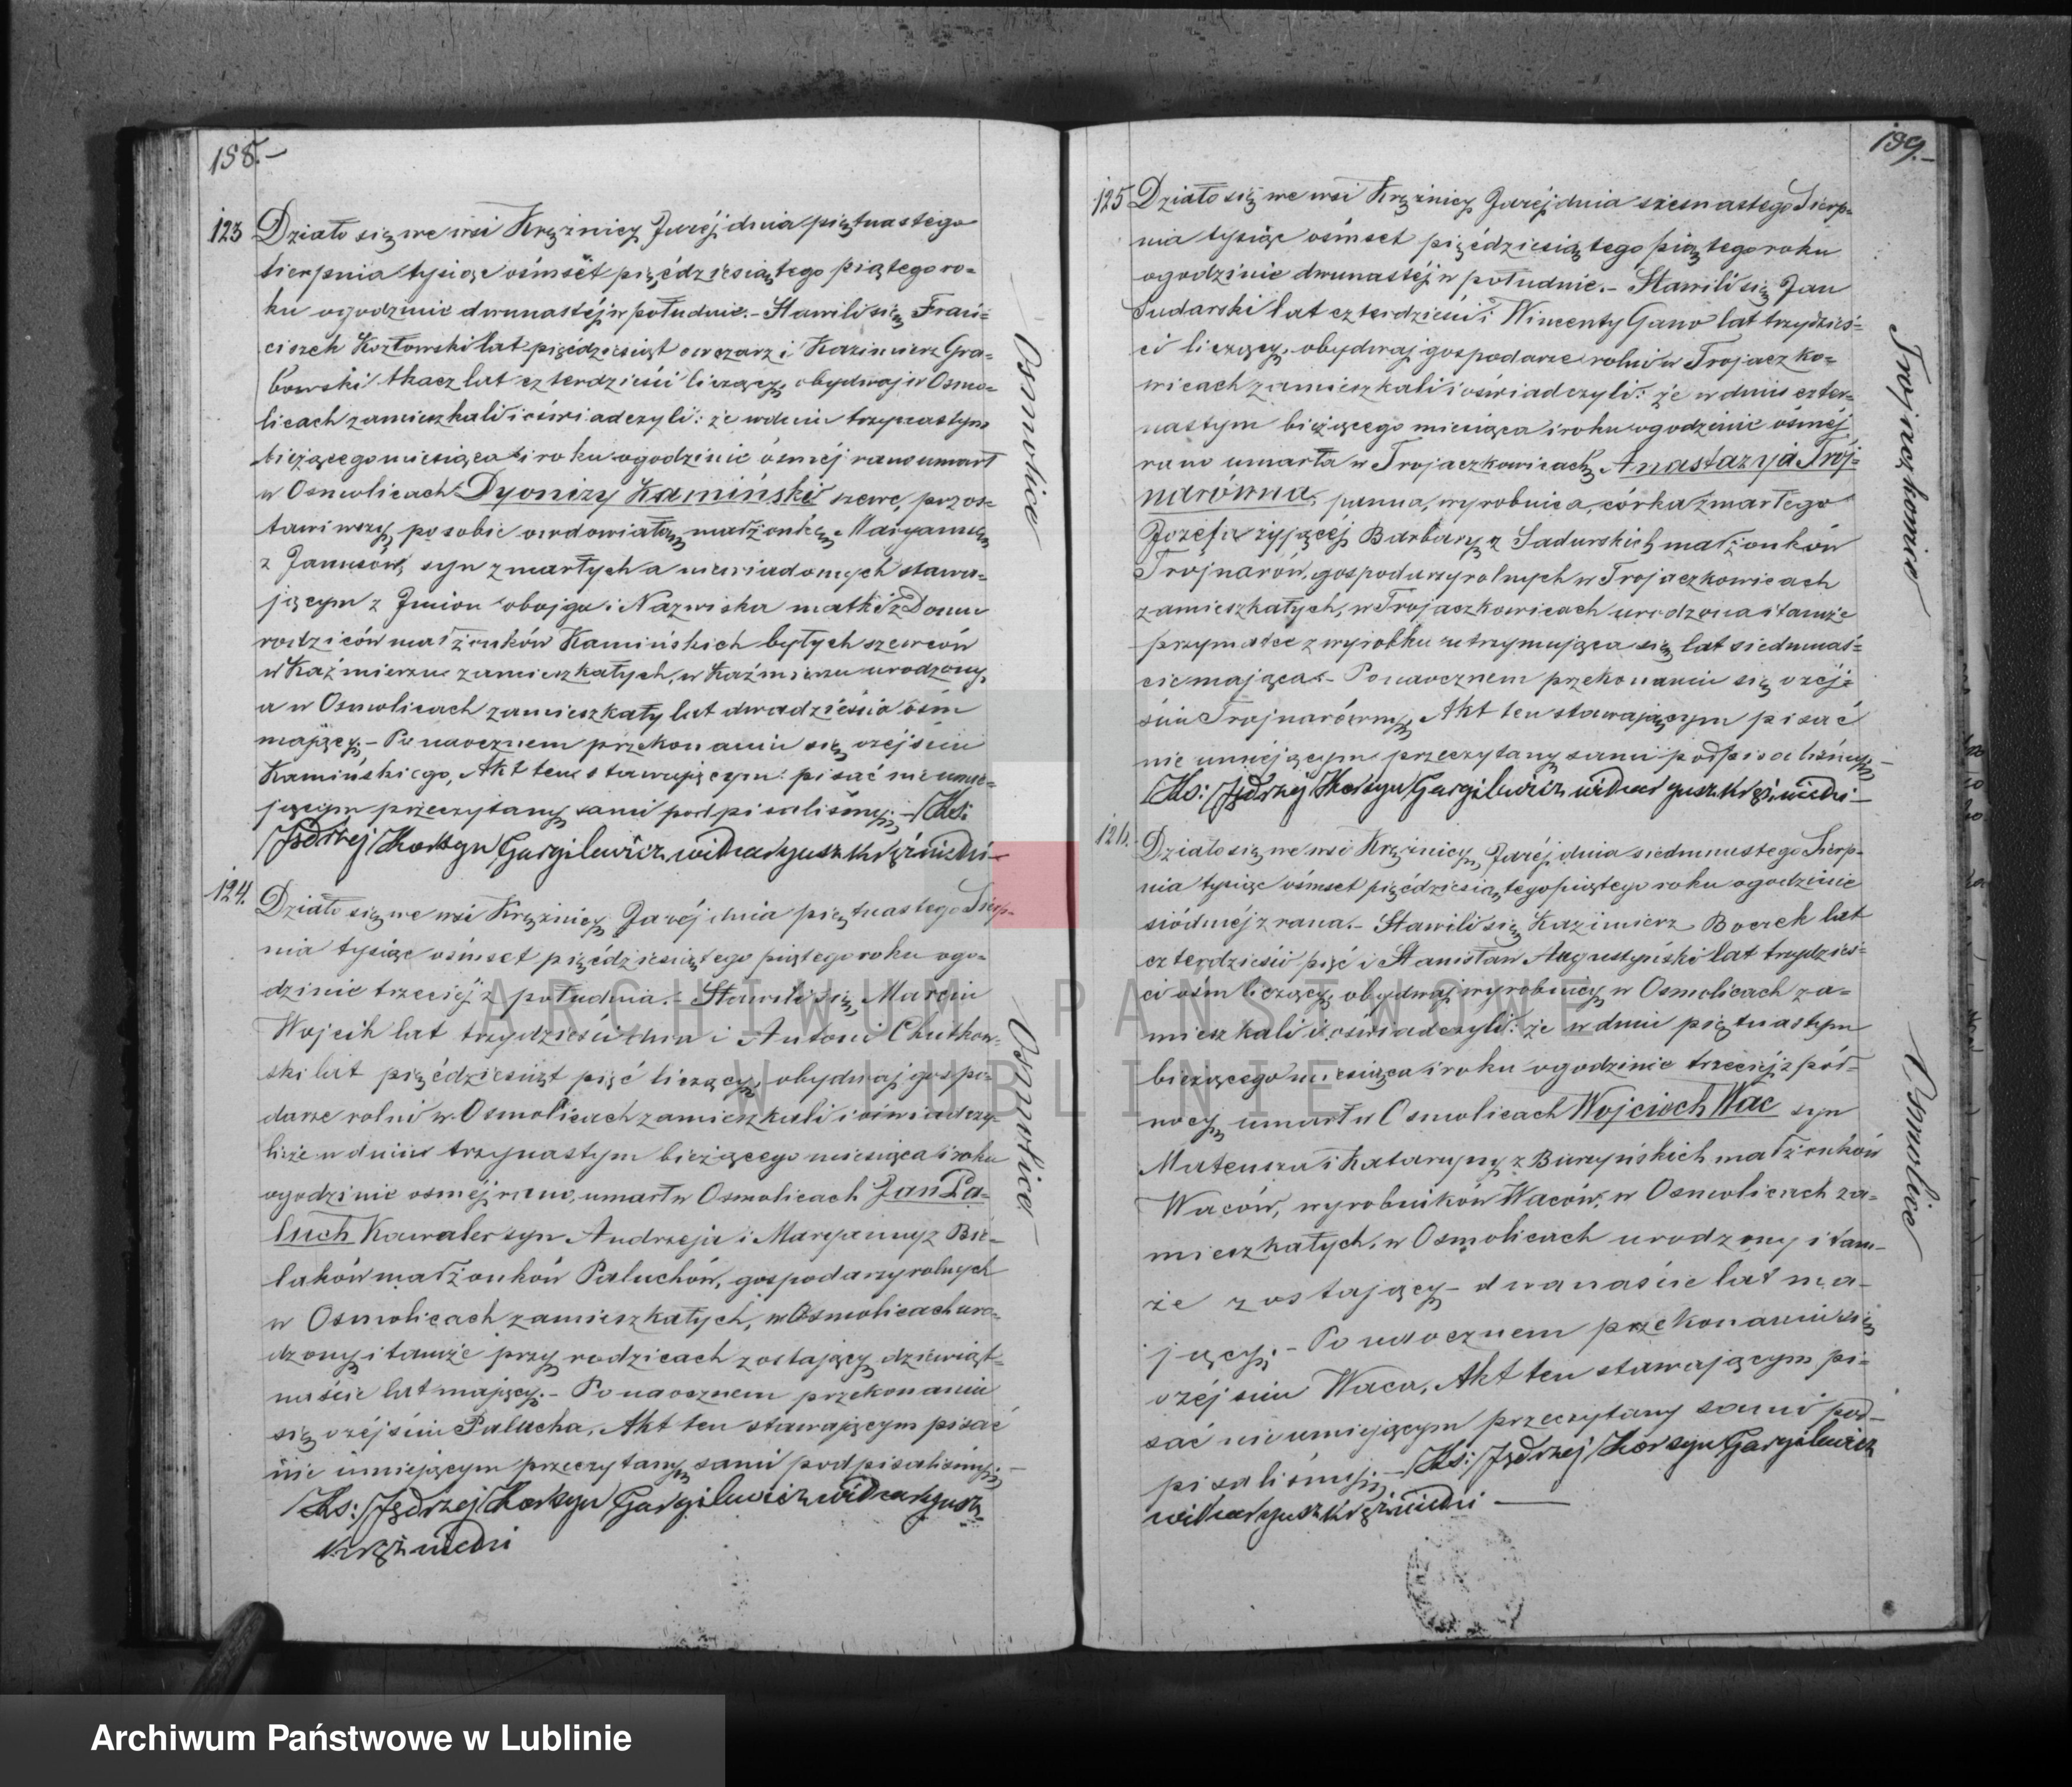 158.-
123 Działo się we wsi Krężnicy Jaréj dnia piętnastego
sierpnia tysiąc ośmset pięćdziesiątego piątego ro-
ku o godzinie dwunastéj w południe.- Stawili się Fran-
ciszek Kozłowski lat pięćdziesiąt owczarz i Kazimierz Gra-
bowski tkacz lat czterdzieści liczący, obydwaj w Osmo-
licach zamieszkali i oświadczyli: że w dniu trzynastym
bieżącego miesiąca i roku o godzinie ósméj rano umarł
w Osmolicach Dyonizy Kamiński szewc, pozos-
tawiwszy po sobie owdowiałą małżonkę Maryannę
z Janusów, syn zmarłych a niewiadomych stawa-
jącym z Imion obojga i Nazwiska matki z Domu
rodziców małżonków Kamińskich byłych szewców
w Kaźmierzu zamieszkałych, w Kaźmierzu urodzony,
a w Osmolicach zamieszkały lat dwadzieścia ośm
mający.- Po naocznem przekonaniu się o zéjściu
Kamińskiego, Akt ten stawającym pisać nieumie-
jącym przeczytany sami podpisaliśmy.- Ks:
Jędrzej Korsyn Gargilewicz wikaryusz Krężnicki
Osmolice
124. Działo się we wsi Krężnicy Jaréj dnia piętnastego Sierp-
nia tysiąc ośmset pięćdziesiątego piątego roku o go-
dzinie trzeciéj z południa.- Stawili się Marcin
Wojcik lat trzydzieści dwa i Antoni Chutkow-
ski lat pięćdziesiąt pięć liczący, obydwaj gospo-
darze rolni w Osmolicach zamieszkali i oświadczy-
li: że w dniu trzynastym bieżącego miesiąca i roku
o godzinie osméj rano, umarł w Osmolicach Jan Pa-
luch Kawaler syn Andrzeja i Maryanny z Bie-
laków małżonków Paluchów, gospodarzy rolnych
w Osmolicach zamieszkałych, w Osmolicach uro-
dzony i tamże przy rodzicach zostający dziewięt-
naście lat mający.- Po naocznem przekonaniu
się o zéjściu Palucha, Akt ten stawającym pisać
nie umiejącym przeczytany sami podpisaliśmy.-
Ks: Jędrzej Korsyn Gargilewicz wikaryusz
Krężnicki
Osmolice
159.-
125 Działo się we wsi Krężnicy Jaréj dnia szesnastego Sierp-
nia tysiąc ośmset pięćdziesiątego piątego roku
o godzinie dwunastéj w południe.- Stawili się Jan
Sadurski lat czterdzieści i Wincenty Gano lat trzydzieś-
ci liczący, obydwaj gospodarze rolni w Trojaczko-
wicach zamieszkali i oświadczyli: że w dniu czter-
nastym bieżącego miesiąca i roku o godzinie ósméj
rano umarła w Trojaczkowicach Anastazyja Trój-
narówna, panna, wyrobnica, córka zmarłego
Józefa żyjącéj Barbary z Sadurskich małżonków
Trojnarów, gospodarzy rolnych w Trojaczkowicach
zamieszkałych, w Trojaczkowicach urodzona i tamże
przy matce z wyrobku utrzymująca się lat siedmnaś-
cie mająca.- Po naocznem przekonaniu się o zéj-
ściu Trojnarówny, Akt ten stawającym pisać
nie umiejącym przeczytany sami podpisaliśmy.-
Ks: Jędrzej Korsyn Gargilewicz wikaryusz Krężnicki-
Trojaczkowice
126. Działo się we wsi Krężnicy Jaréj dnia siedmnastego Sierp-
nia tysiąc ośmset pięćdziesiątego piątego roku o godzinie
siódméj z rana.- Stawili się Kazimierz Boczek lat
czterdzieści pięć i Stanisław Augustyński lat trzydzieś-
ci ośm liczący, obydwaj wyrobnicy w Osmolicach za-
mieszkali i oświadczyli: że w dniu piętnastym
bieżącego miesiąca i roku o godzinie trzeciéj z pół-
nocy umarł w Osmolicach Wojciech Wac syn
Mateusza i Katarzyny z Burzyńskich małżonków
Waców, wyrobników Waców, w Osmolicach za-
mieszkałych, w Osmolicach urodzony i tam-
że zostający - dwanaście lat ma-
jący.- Po naocznem przekonaniu się
o zéjściu Waca, Akt ten stawającym pi-
sać nie umiejącym przeczytany sami pod-
pisaliśmy.- Ks: Jędrzej Korsyn Gargilewicz
wikaryusz Krężnicki
Osmolice
ARCHIWUM PAŃSTWOWE
W LUBLINIE
Archiwum Państwowe w Lublinie